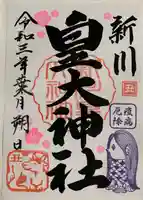 新川
皇大神社
令和三年葉月朔日
疫病
厄除